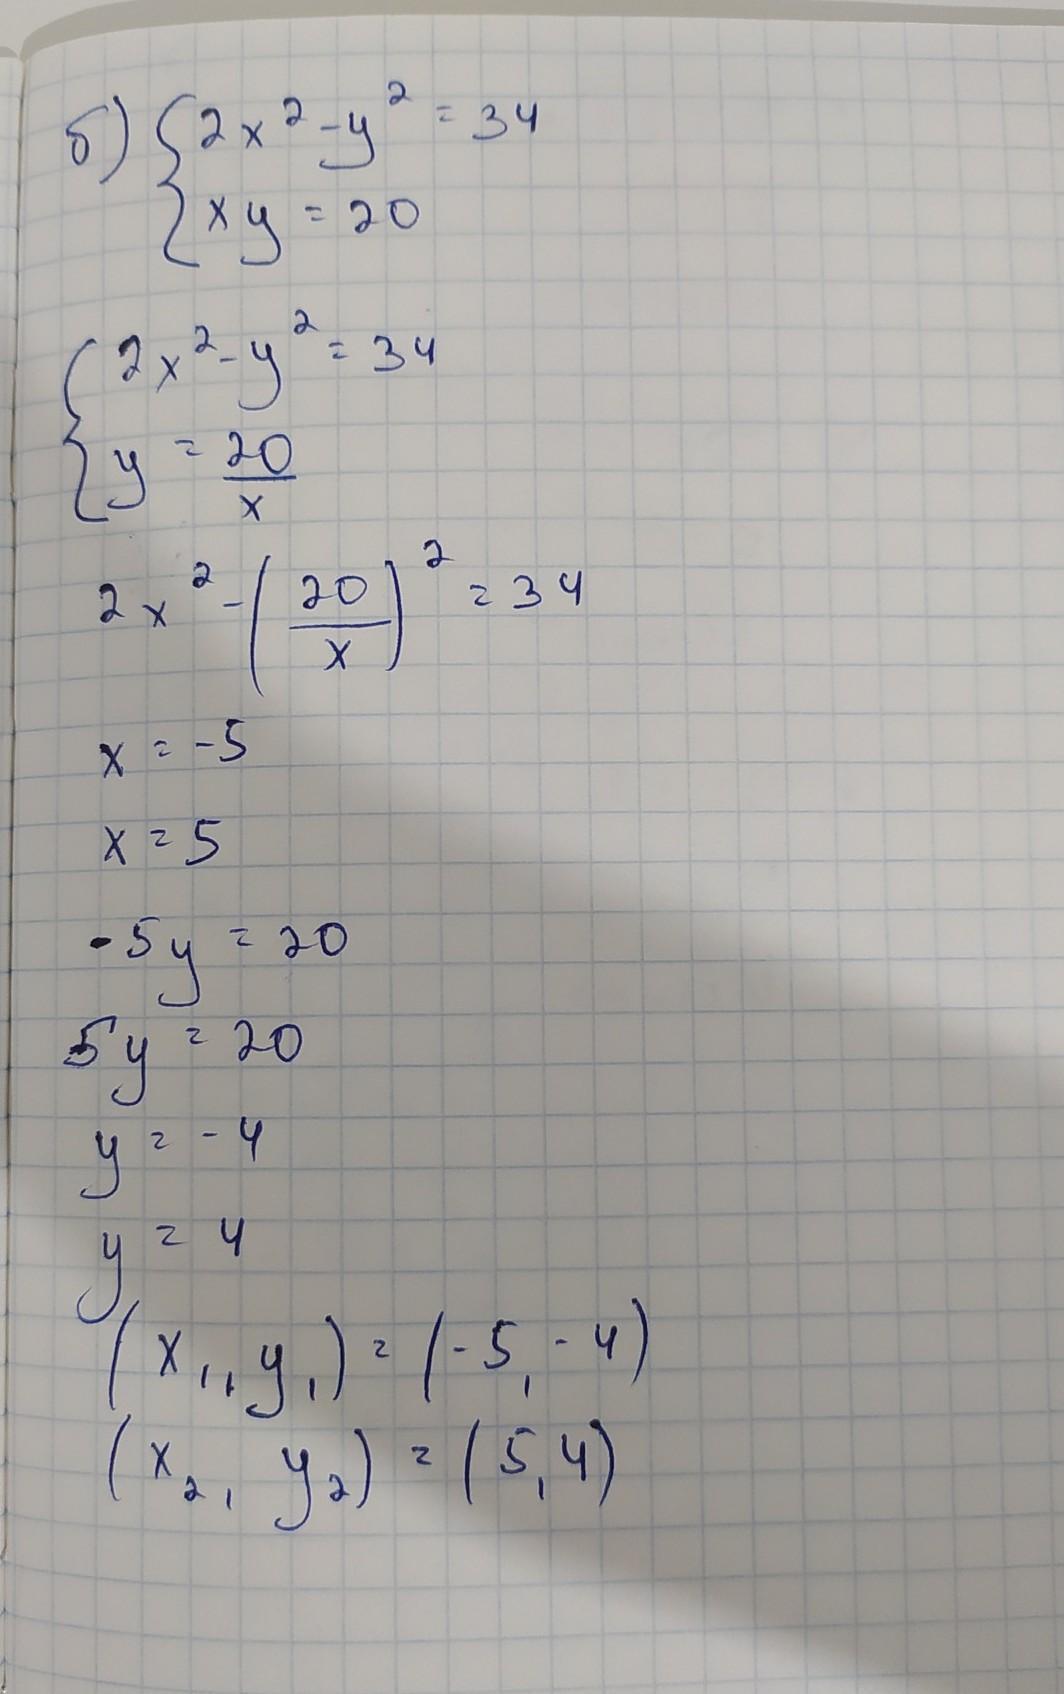 б) { 2x² - y² = 34
xy = 20
{ 2x² - y² = 34
y = 20/x
2x² - (20/x)² = 34
x = -5
x = 5
-5y = 20
5y = 20
y = -4
y = 4
(x₁, y₁) = (-5, -4)
(x₂, y₂) = (5, 4)